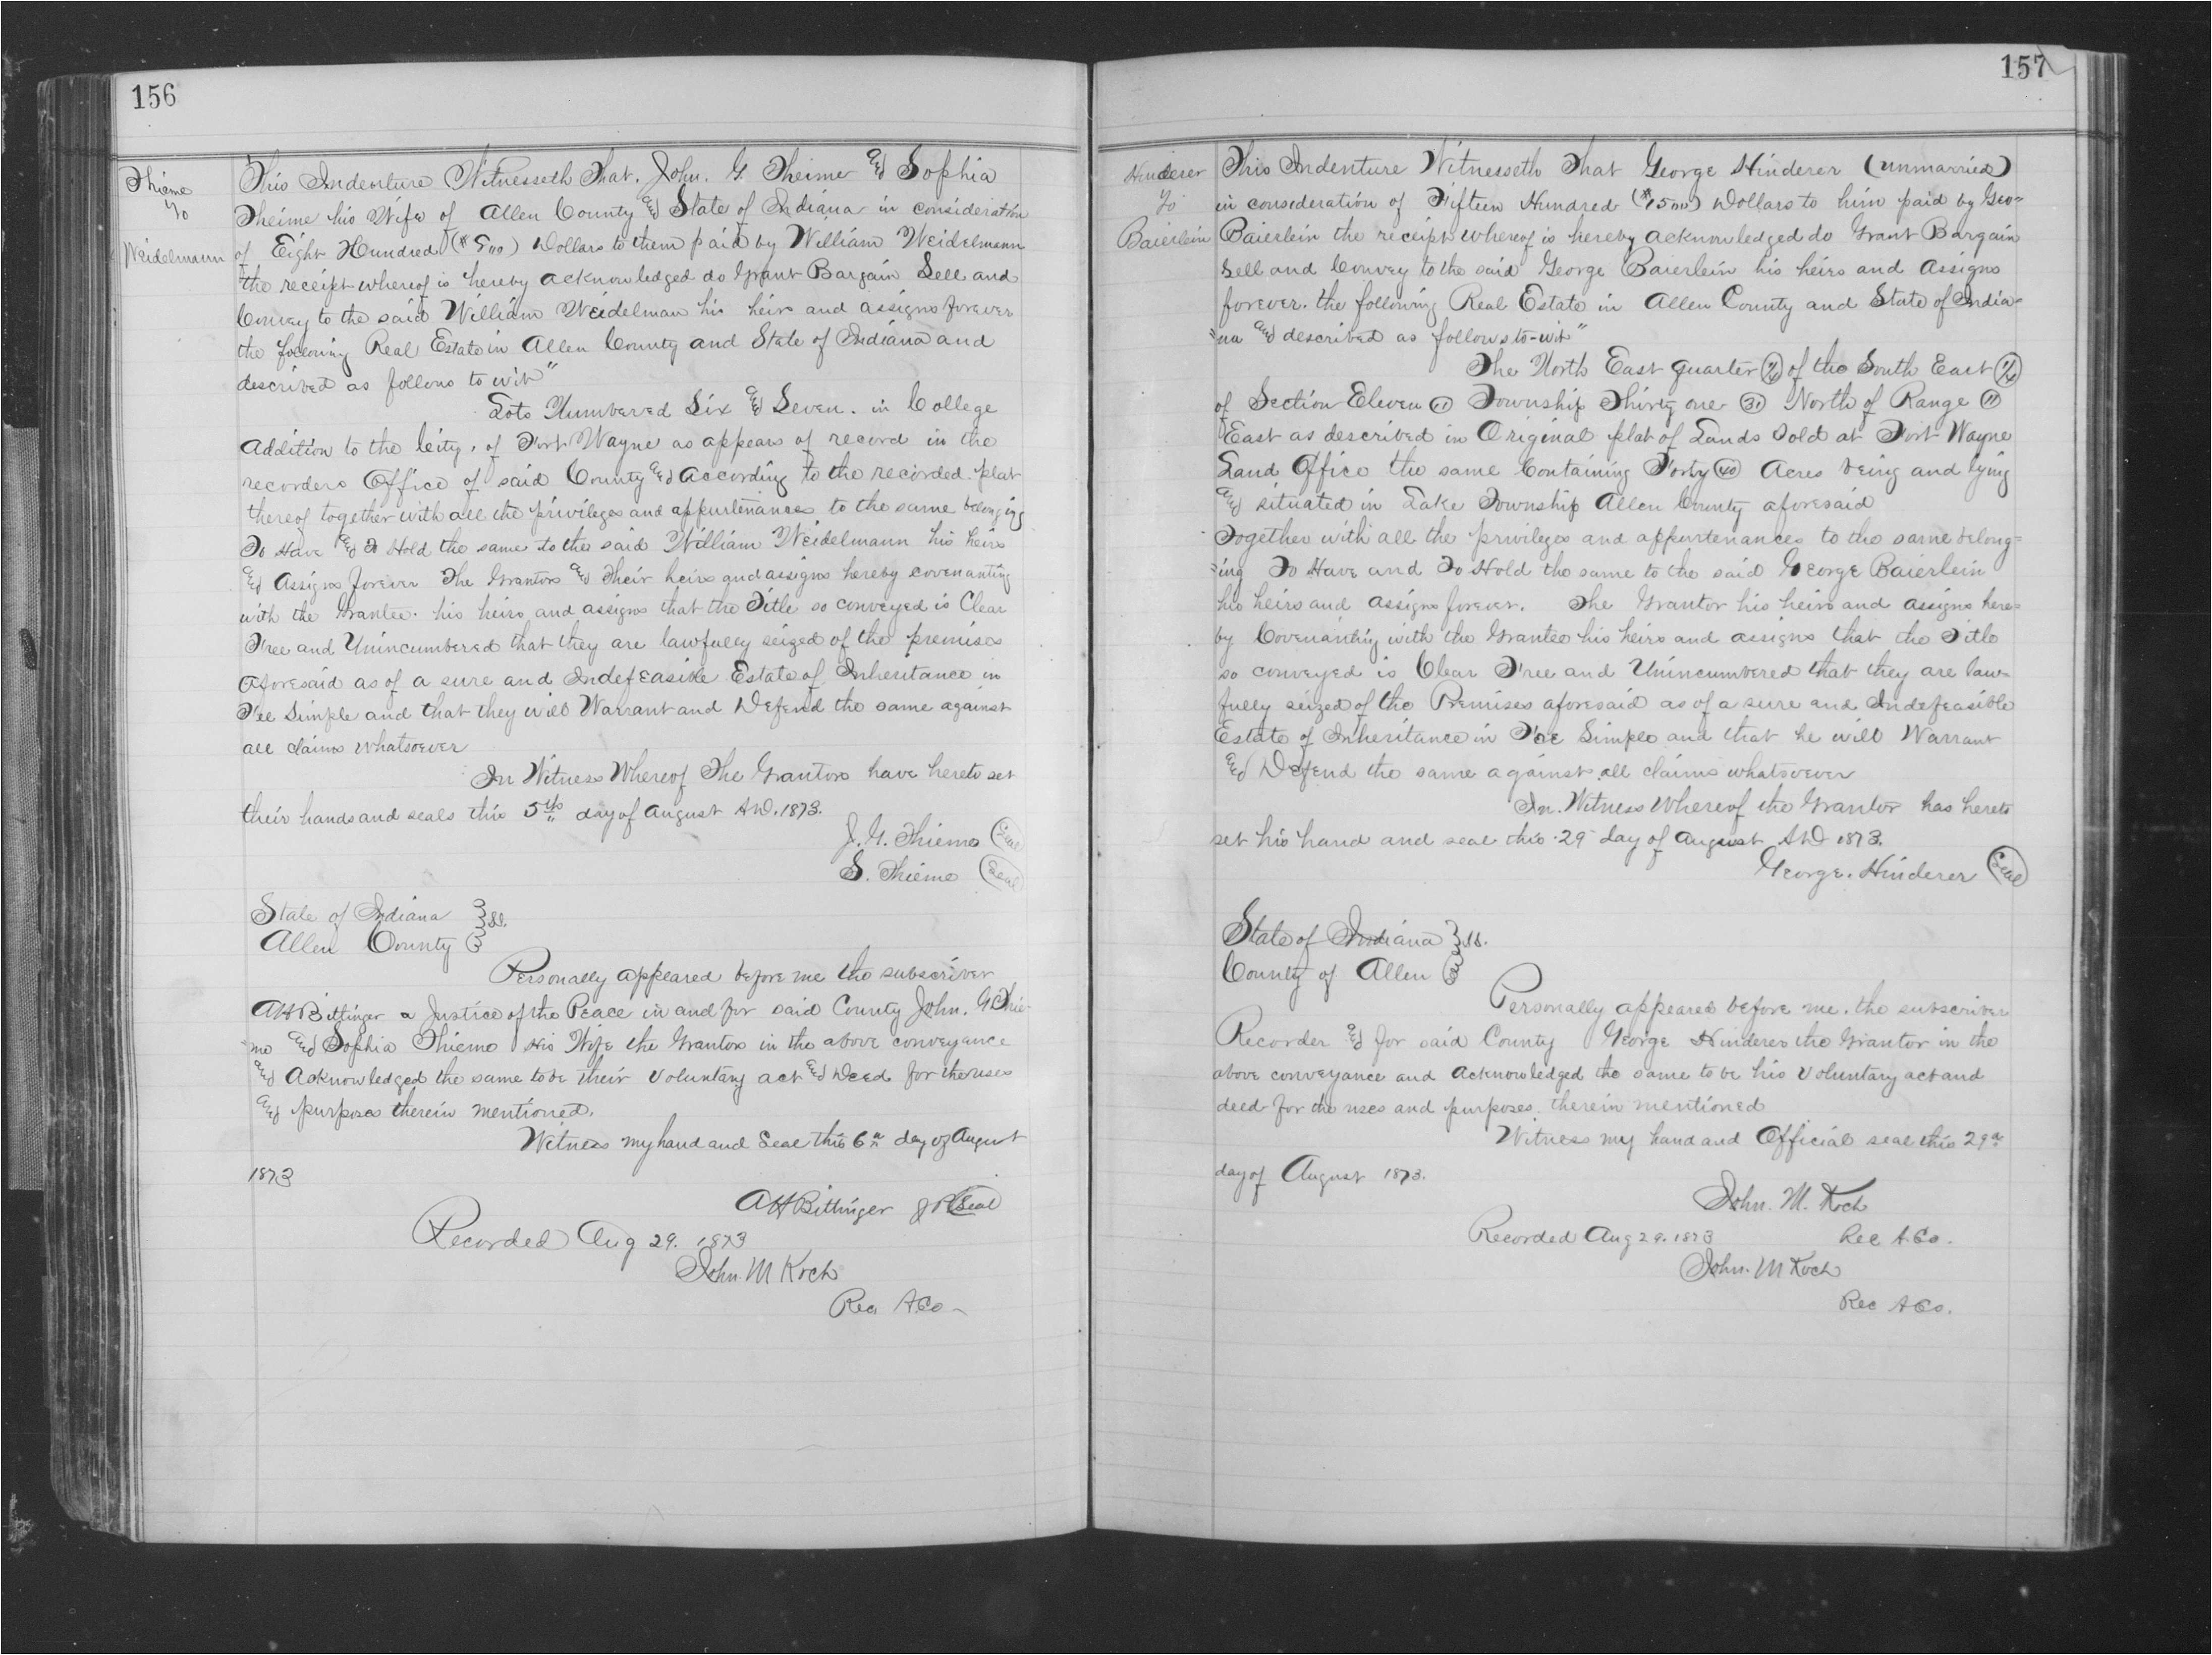 156
Thieme
to
Weidelmann
This Indenture Witnesseth That. John. G. Theime and Sophia
Theime his Wife of Allen County and State of Indiana in consideration
of Eight Hundred ($800) Dollars to them paid by William Weidelmann
the receipt whereof is hereby acknowledged do Grant Bargain Sell and
Convey to the said William Weidelman his heirs and assigns forever
the following Real Estate in Allen County and State of Indiana and
described as follows to wit"
Lots Numbered Six and Seven. in College
Addition to the City, of Fort Wayne as appears of record in the
recorders Office of said County and According to the recorded plat
thereof together with all the privileges and appurtenances to the same belonging
To Have and To Hold the same to the said William Weidelmann his heirs
and Assigns forever The Grantors and Their heirs and assigns hereby covenanting
with the Grantee. his heirs and assigns that the Title so conveyed is Clear
Free and Unincumbered that they are lawfully seized of the premises
aforesaid as of a sure and Indefeasible Estate of Inheritance in
Fee Simple and that they will Warrant and Defend the same against
all claims whatsoever
In Witness Whereof The Grantors have hereto set
their hands and seals this 5th day of August A.D. 1873.
J. G. Thieme (Seal)
S. Thieme (Seal)
State of Indiana } SS.
Allen County }
Personally appeared before me the subscriber
AH Bittinger a Justice of the Peace in and for said County John. G Thie-
"me and Sophia Thieme His Wife the Grantors in the above conveyance
and Acknowledged the same to be their Voluntary act and Deed for the uses
and purposes therein mentioned.
Witness my hand and Seal this 6th day of August
1873
AH Bittinger JP (Seal)
Recorded Aug 29. 1873
John. M Koch
Rec A.Co
157
Hinderer
To
Baierlein
This Indenture Witnesseth That George Hinderer (unmarried)
in consideration of Fifteen Hundred ($1500) Dollars to him paid by Geo"
Baierlein the receipt whereof is hereby acknowledged do Grant Bargain
Sell and Convey to the said George Baierlein his heirs and Assigns
forever. the following Real Estate in Allen County and State of India-
"na and described as follows to-wit"
The North East quarter (1/4) of the South East (1/4)
of Section Eleven (11) Township Thirty one (31) North of Range (11)
East as described in Original plat of Lands Sold at Fort Wayne
Land Office the same Containing Forty (40) Acres being and lying
and situated in Lake Township Allen County aforesaid
Together with all the privileges and appurtenances to the same belong=
"ing To Have and To Hold the same to the said George Baierlein
his heirs and assigns forever. The Grantor his heirs and assigns here=
by Covenanting with the Grantee his heirs and assigns that the Title
so conveyed is Clear Free and Unincumbered that they are law-
fully seized of the Premises aforesaid as of a sure and Indefeasible
Estate of Inheritance in Fee Simple and that he will Warrant
and Defend the same against all claims whatsoever
In Witness Whereof the Grantor has hereto
set his hand and seal this 29 day of August A D 1873.
George. Hinderer (Seal)
State of Indiana } SS.
County of Allen }
Personally appeared before me. the subscriber
Recorder and for said County George Hinderer the Grantor in the
above conveyance and Acknowledged the same to be his Voluntary act and
deed for the uses and purposes therein mentioned
Witness my hand and Official seal this 29th
day of August 1873.
John. M. Koch
Recorded Aug 29. 1873 Rec A.Co.
John. M Koch
Rec A Co.